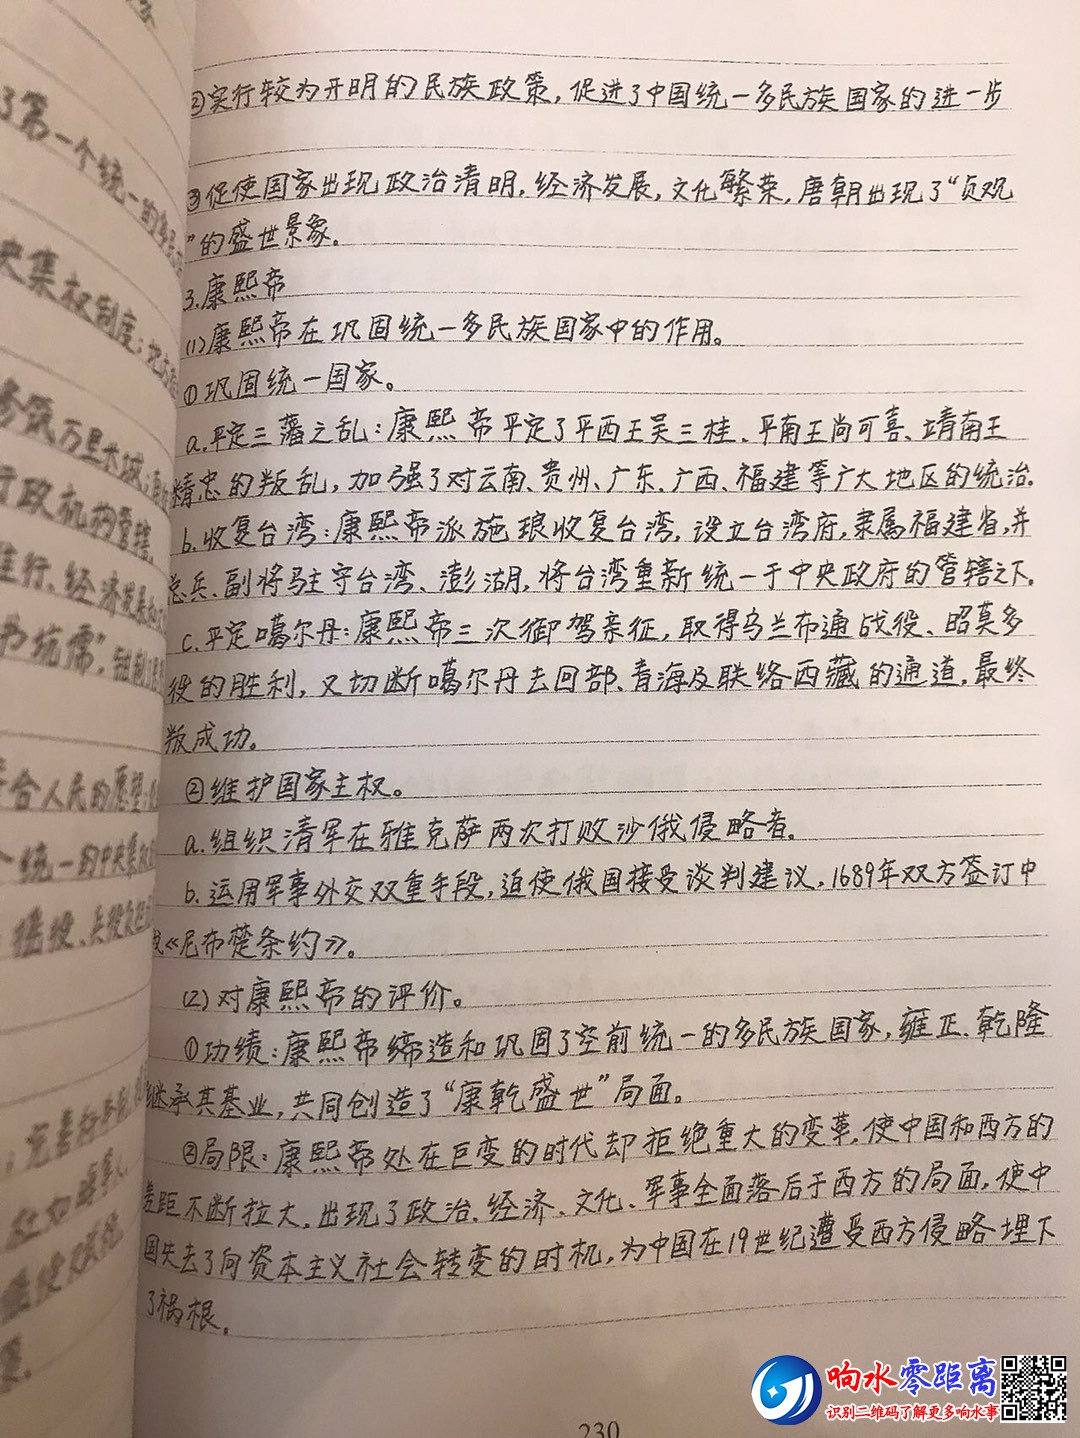 ②实行较为开明的民族政策，促进了中国统一多民族国家的进一步
③促使国家出现政治清明，经济发展，文化繁荣，唐朝出现了“贞观
”的盛世景象。
3.康熙帝
(1)康熙帝在巩固统一多民族国家中的作用。
①巩固统一国家。
a.平定三藩之乱：康熙帝平定了平西王吴三桂、平南王尚可喜、靖南王
精忠的叛乱，加强了对云南、贵州、广东、广西、福建等广大地区的统治。
b.收复台湾：康熙帝派施琅收复台湾，设立台湾府，隶属福建省，并
总兵、副将驻守台湾、澎湖，将台湾重新统一于中央政府的管辖之下。
c.平定噶尔丹：康熙帝三次御驾亲征，取得乌兰布通战役、昭莫多
役的胜利，又切断噶尔丹去回部、青海及联络西藏的通道，最终
叛成功。
②维护国家主权。
a.组织清军在雅克萨两次打败沙俄侵略者。
b.运用军事外交双重手段，迫使俄国接受谈判建议，1689年双方签订中
《尼布楚条约》。
(2)对康熙帝的评价。
①功绩：康熙帝缔造和巩固了空前统一的多民族国家，雍正、乾隆
继承其基业，共同创造了“康乾盛世”局面。
②局限：康熙帝处在巨变的时代却拒绝重大的变革，使中国和西方的
差距不断拉大，出现了政治、经济、文化、军事全面落后于西方的局面，使中
国失去了向资本主义社会转变的时机，为中国在19世纪遭受西方侵略埋下
了祸根。
230
了第一个统一的多民
央集权制度；
修筑万里长城；
行政机构管辖，
推行、经济发展和
书坑儒”，钳制
符合人民的愿望；
个统一的中央集权
徭役、兵役
响水零距离
识别二维码了解更多响水事